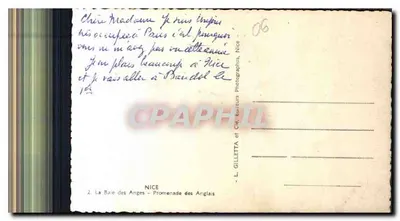 Chère Madame Je suis toujours
très occupée à Paris c'est pourquoi
vous ne m'avez pas vu cette année
Je me plais beaucoup à Nice
et je vais aller à Bandol le
1er
06
NICE
2. La Baie des Anges - Promenade des Anglais
L. GILLETTA et Cie, Editeurs Photographes, NICE